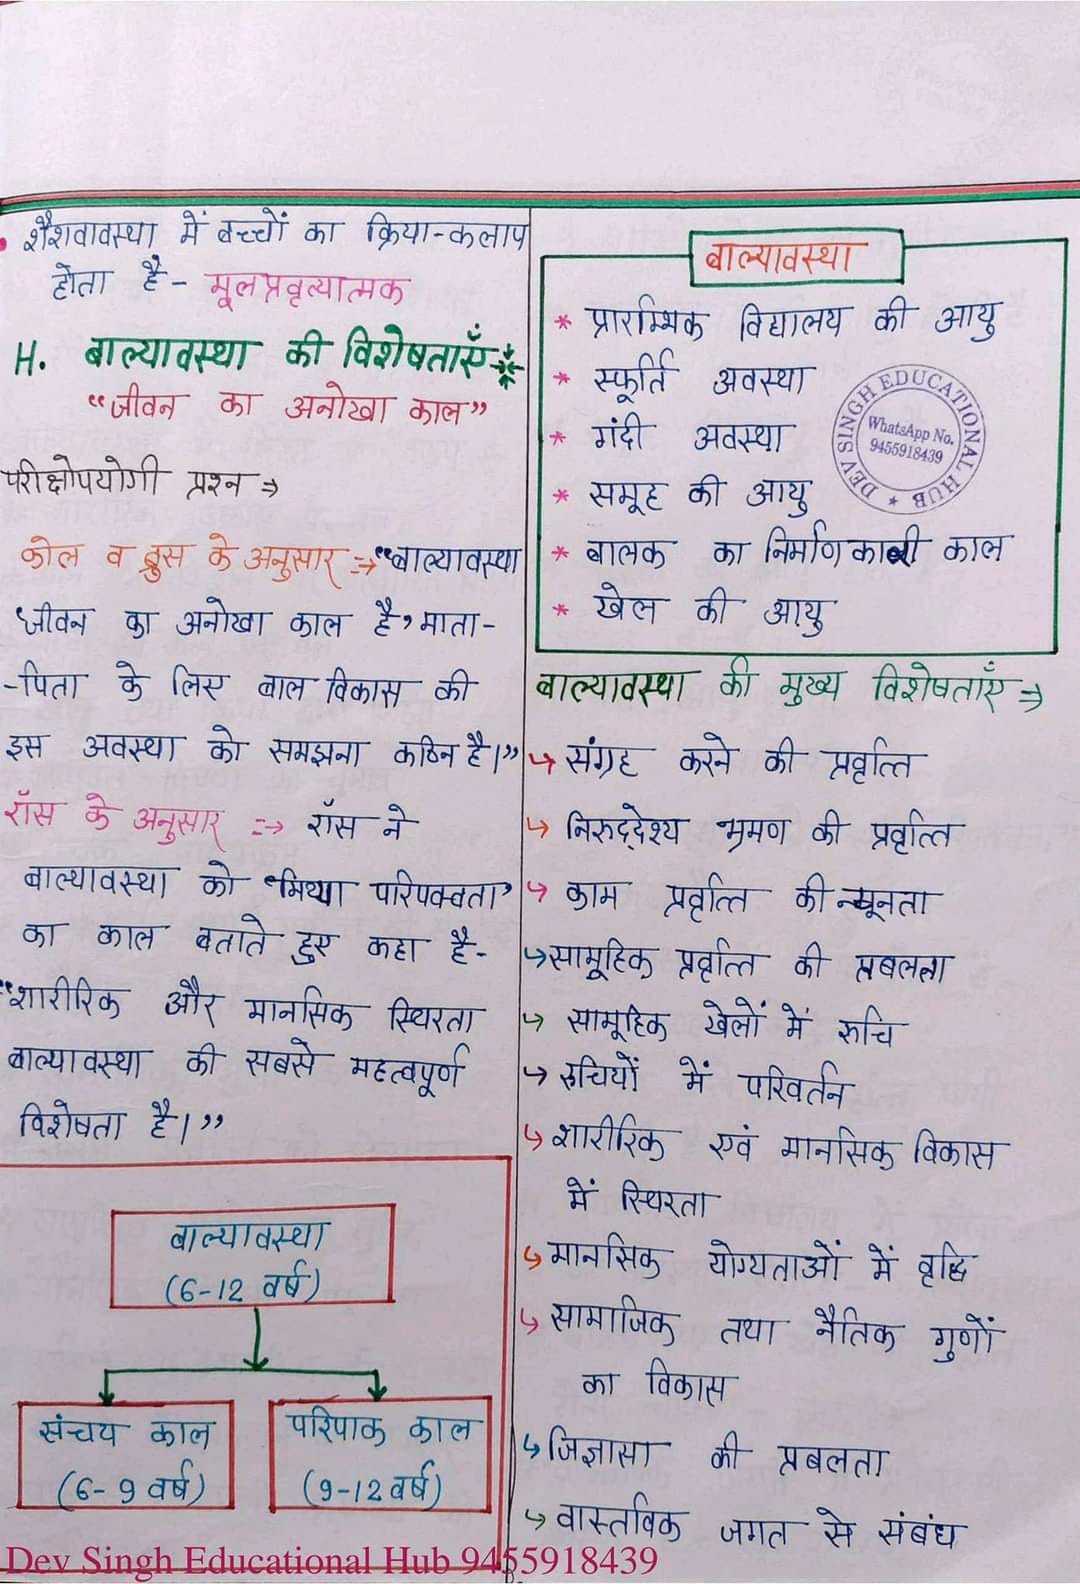 शैशवावस्था में बच्चों का क्रिया-कलाप
होता है - मूलप्रवृत्यात्मक
H. बाल्यावस्था की विशेषताएँ
“जीवन का अनोखा काल”
परीक्षोपयोगी प्रश्न ⇒
कोल व ब्रुस के अनुसार ⇒ “बाल्यावस्था
जीवन का अनोखा काल है, माता-
-पिता के लिए बाल विकास की
इस अवस्था को समझना कठिन है।”
रॉस के अनुसार ⇒ रॉस ने
बाल्यावस्था को “मिथ्या परिपक्वता”
का काल बताते हुए कहा है-
“शारीरिक और मानसिक स्थिरता
बाल्यावस्था की सबसे महत्वपूर्ण
विशेषता है।”
बाल्यावस्था
(6-12 वर्ष)
संचय काल
(6-9 वर्ष)
परिपाक काल
(9-12 वर्ष)
बाल्यावस्था
* प्रारम्भिक विद्यालय की आयु
* स्फूर्ति अवस्था
* गंदी अवस्था
* समूह की आयु
* बालक का निर्माणकारी काल
* खेल की आयु
DEV SINGH EDUCATIONAL HUB
WhatsApp No.
9455918439
बाल्यावस्था की मुख्य विशेषताएँ ⇒
↳ संग्रह करने की प्रवृत्ति
↳ निरुद्देश्य भ्रमण की प्रवृत्ति
↳ काम प्रवृत्ति की न्यूनता
↳ सामूहिक प्रवृत्ति की प्रबलता
↳ सामूहिक खेलों में रुचि
↳ रुचियों में परिवर्तन
↳ शारीरिक एवं मानसिक विकास
में स्थिरता
↳ मानसिक योग्यताओं में वृद्धि
↳ सामाजिक तथा नैतिक गुणों
का विकास
↳ जिज्ञासा की प्रबलता
↳ वास्तविक जगत से संबंध
Dev Singh Educational Hub 9455918439